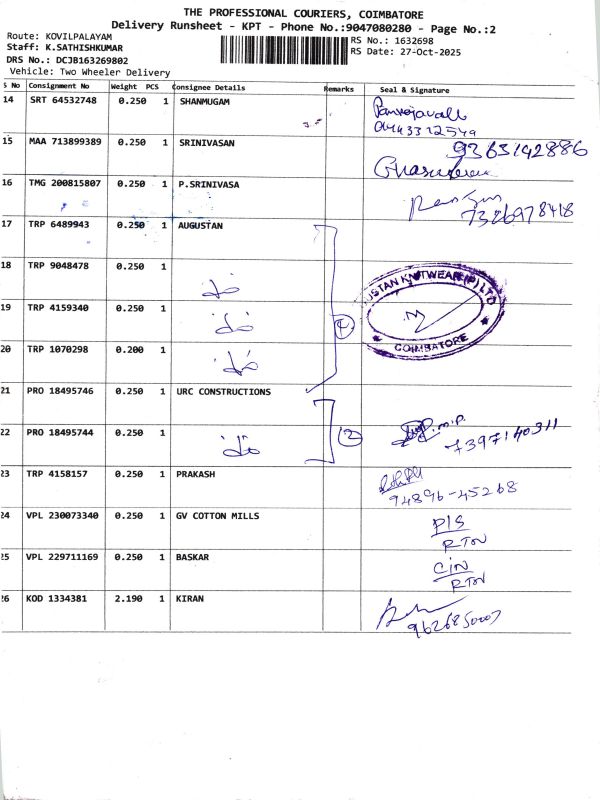 THE PROFESSIONAL COURIERS, COIMBATORE
Delivery Runsheet - KPT - Phone No.:9047080280 - Page No.:2
Route: KOVILPALAYAM
RS No.: 1632698
Staff: K.SATHISHKUMAR
RS Date: 27-Oct-2025
DRS No.: DCJB163269802
Vehicle: Two Wheeler Delivery
S No Consignment No Weight PCS Consignee Details Remarks Seal & Signature
14 SRT 64532748 0.250 1 SHANMUGAM
15 MAA 713899389 0.250 1 SRINIVASAN 9363142886
16 TMG 200815807 0.250 1 P.SRINIVASA
7326978418
17 TRP 6489943 0.250 1 AUGUSTAN
18 TRP 9048478 0.250 1
KNITWEAR (P) LTD
COIMBATORE
19 TRP 4159340 0.250 1 4
20 TRP 1070298 0.200 1
21 PRO 18495746 0.250 1 URC CONSTRUCTIONS
22 PRO 18495744 0.250 1 2 7397140311
23 TRP 4158157 0.250 1 PRAKASH
94896-45268
24 VPL 230073340 0.250 1 GV COTTON MILLS P/S
RTN
25 VPL 229711169 0.250 1 BASKAR C/N
RTN
26 KOD 1334381 2.190 1 KIRAN
9626850007